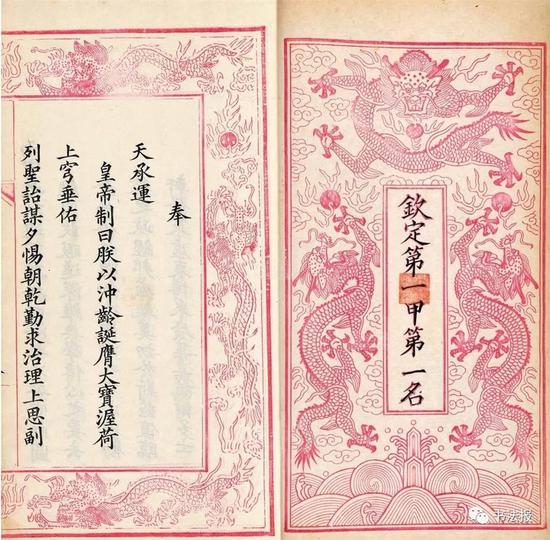 欽定第一甲第一名
奉
天承運
皇帝制曰朕以沖齡誕膺大寶渥荷
上穹垂佑
列聖詒謀夕惕朝乾勤求治理上思副
书法报